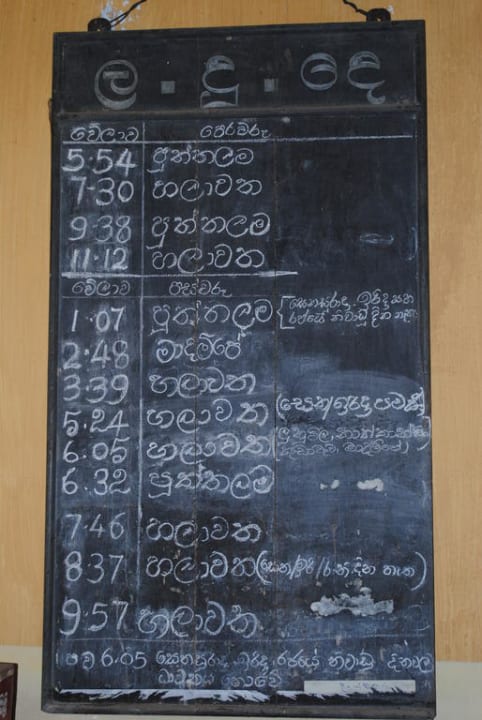 ල . දු . දෙ
වේලාව පෙරවරු
5.54 පුත්තලම
7.30 හලාවත
9.38 පුත්තලම
11.12 හලාවත
වේලාව පස්වරු
1.07 පුත්තලම [සෙනසුරාදා, ඉරිදා සහ
රජයේ නිවාඩු දින නැත
2.48 මාදම්පේ
3.39 හලාවත
5.24 හලාවත (සෙන/ඉරිදා පමණි)
6.05 හලාවත
6.32 පුත්තලම
7.46 හලාවත
8.37 හලාවත (සෙන/ඉරි/ර.නි.දින නැත)
9.57 හලාවත
ප.ව 6.05 සෙනසුරාදා ඉරිදා රජයේ නිවාඩු දිනවල
ධාවනය නොවේ